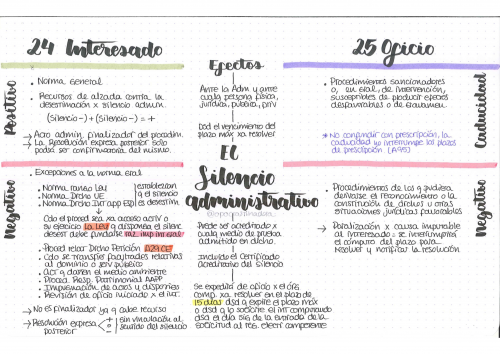 24 Interesado
Positivo
• Norma General
• Recursos de alzada contra la
desestimación x silencio admin.
(Silencio -) + (Silencio -) = +
→ Acto admin. finalizador del procedim.
→ La Resolución expresa posterior solo
podrá ser confirmatoria del mismo.
Negativo
Excepciones a la norma gral
• Norma rango Ley
• Norma Drcho UE
• Norma Drcho Int app Esp
establezcan
q el silencio
es desestim
Cdo el proced sea xa acceso activ o
su ejercicio La Ley q disponga el silenc
desest debe fundarse raz. imp. int. gral
• Proced relac Drcho Petición A29 CE
• Cdo se transfer facultades relativas
al dominio o serv público
• Act q dañen el medio ambiente
• Proced. Resp. Patrimonial AAPP
• Impugnación de actos y disposiciones
• Revisión de oficio iniciado x el int.
→ No es finalizador ya q cabe recurso
→ Resolución expresa
posterior
+
-
sin vinculación al
sentido del silencio
Efectos
Ante la Adm y ante
cualq persona física,
jurídica, públic, priv
Dsd el vencimiento del
plazo máx xa resolver
El
Silencio
administrativo
Puede ser acreditado x
cualq medio de prueba
admitido en dcho.
Incluido el Certificado
Acreditativo del silencio
Se expedirá de oficio x el órg
comp. xa resolver en el plazo de
15 días dsd q expire el plazo máx
o dsd q lo solicite el int computando
dsd el día sig de la entrada de la
solicitud al reg. electr competente
25 Oficio
Caducidad
• Procedimientos sancionadores
o, en gral, de intervención,
susceptibles de producir efectos
desfavorables o de gravamen.
* No confundir con prescripción, la
caducidad no interrumpe los plazos
de prescripción (A95)
Negativo
• Procedimientos de los q pudiera
derivarse el reconocimiento o la
constitución de dchos u otras
situaciones jurídicas favorables
→ Paralización x causa imputable
al interesado: se interrumpirá
el cómputo del plazo para
resolver y notificar la resolución